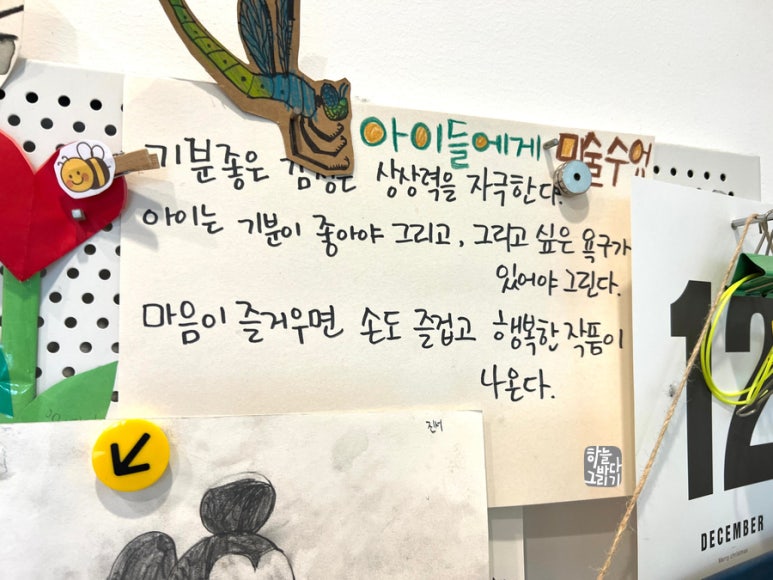 아이들에게 미술수업
기분좋은 감정은 상상력을 자극한다.
아이는 기분이 좋아야 그리고, 그리고 싶은 욕구가
있어야 그린다.
마음이 즐거우면 손도 즐겁고 행복한 작품이
나온다.
하늘
진서
12
DECEMBER
Merry christmas